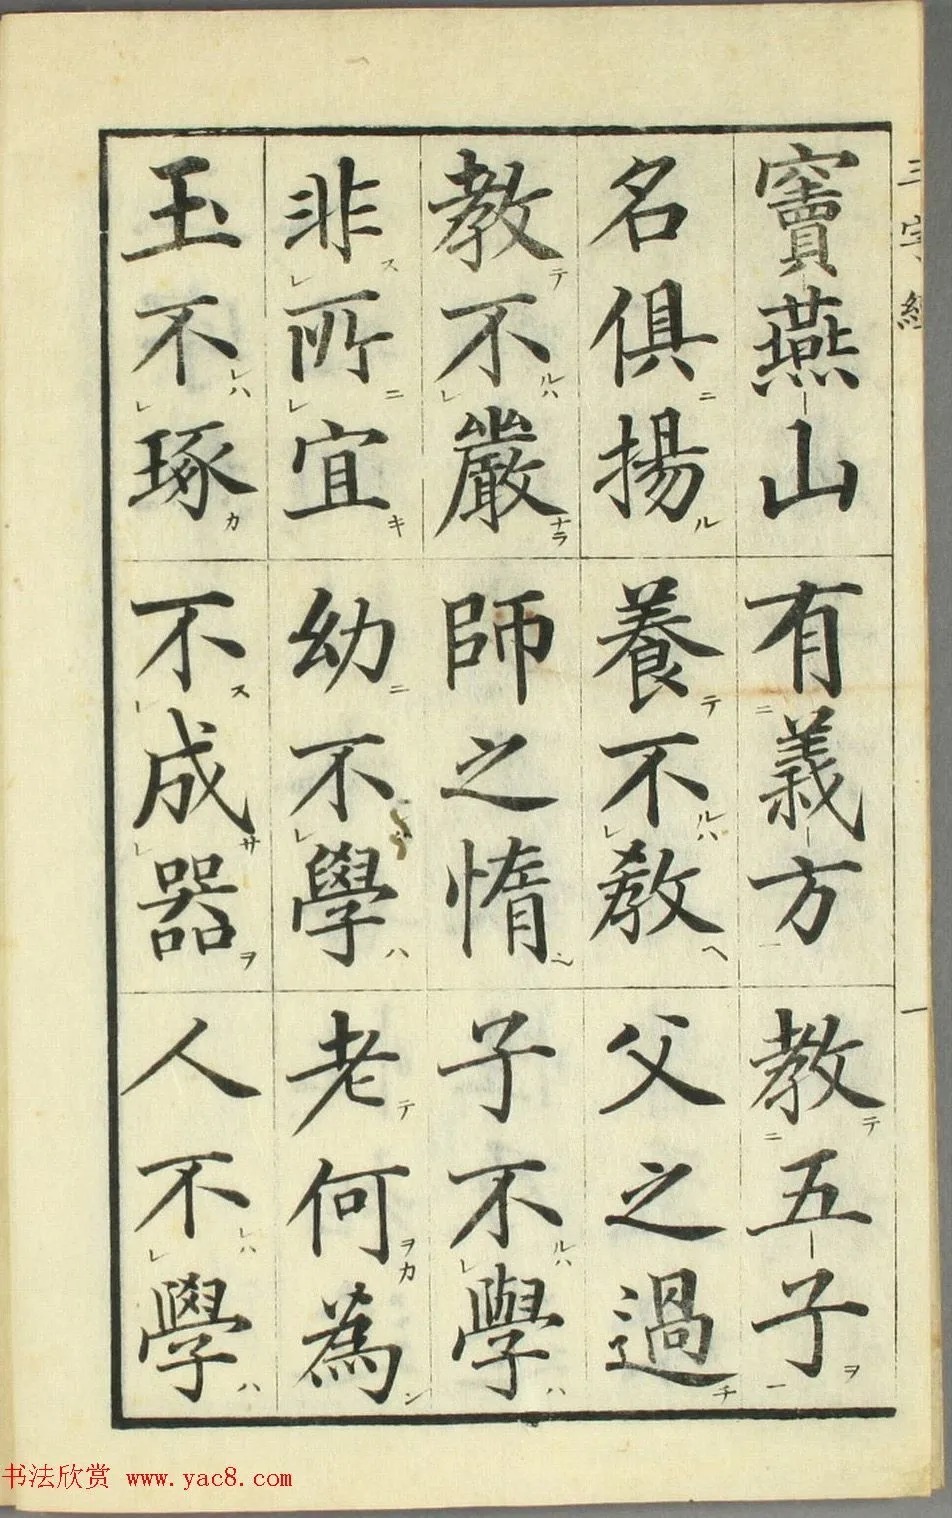 三字經
一
竇燕山 有義方 教五子
名俱揚 養不教 父之過
教不嚴 師之惰 子不學
非所宜 幼不學 老何為
玉不琢 不成器 人不學
书法欣赏 www.yac8.com